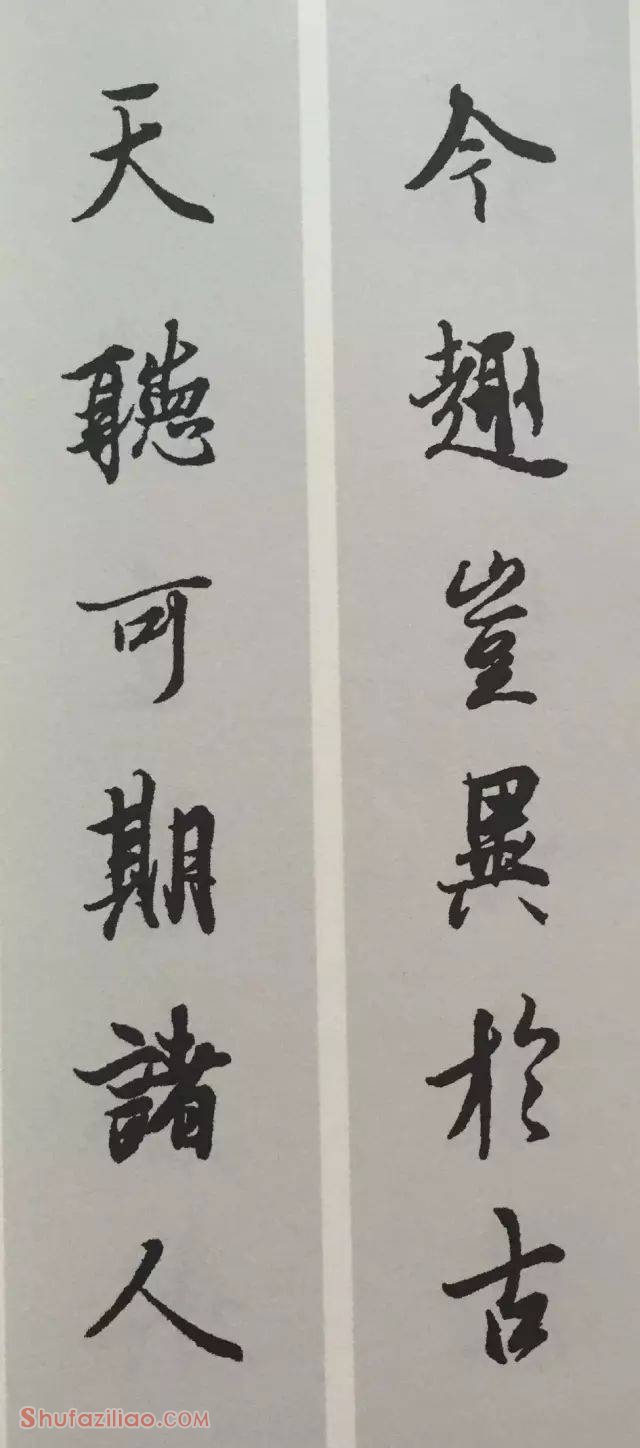 今趣豈異於古
天聽可期諸人
Shufaziliao.COM